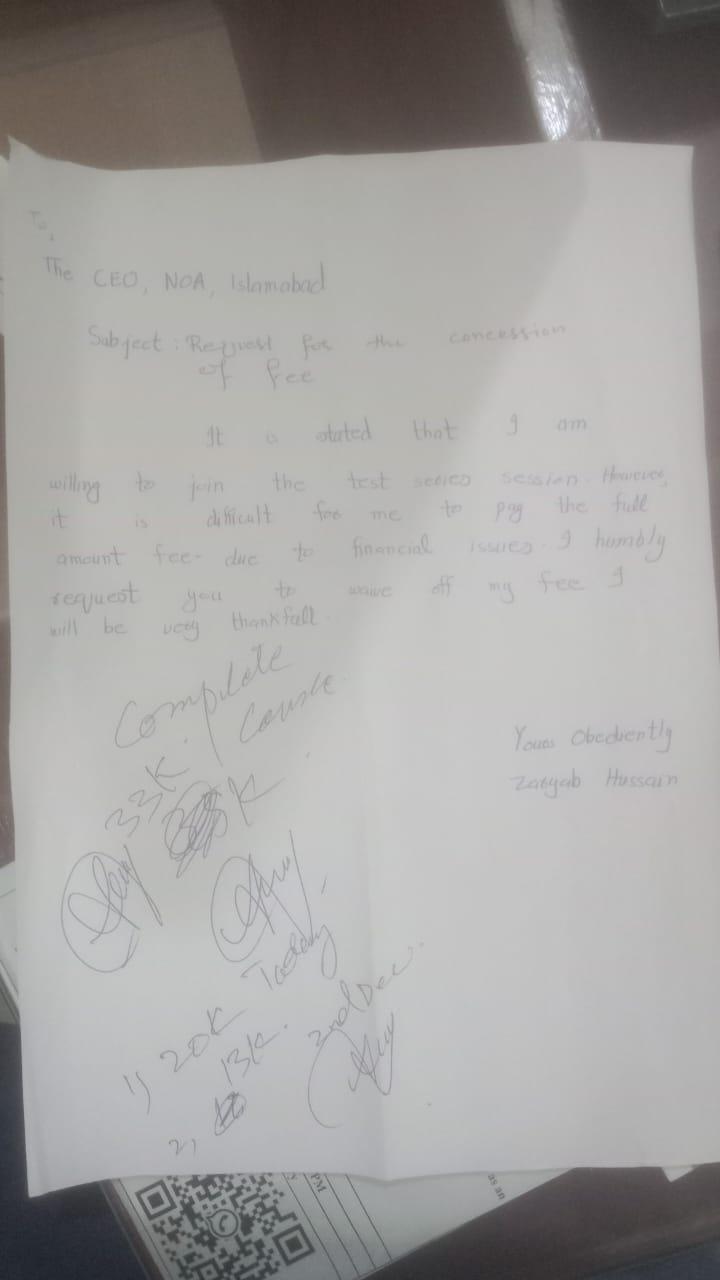 To,
The CEO, NOA, Islamabad
Subject: Request for the concession
of fee
It is stated that I am
willing to join the test series session. However,
it is difficult for me to pay the full
amount fee due to financial issues. I humbly
request you to waive off my fee I
will be very thankfull.
Complete
Course.
33K.
K.
Yours Obediently
Zaryab Hussain
1) 20K Today
2, 13K. 2nd Dec.
PM
Y
as an